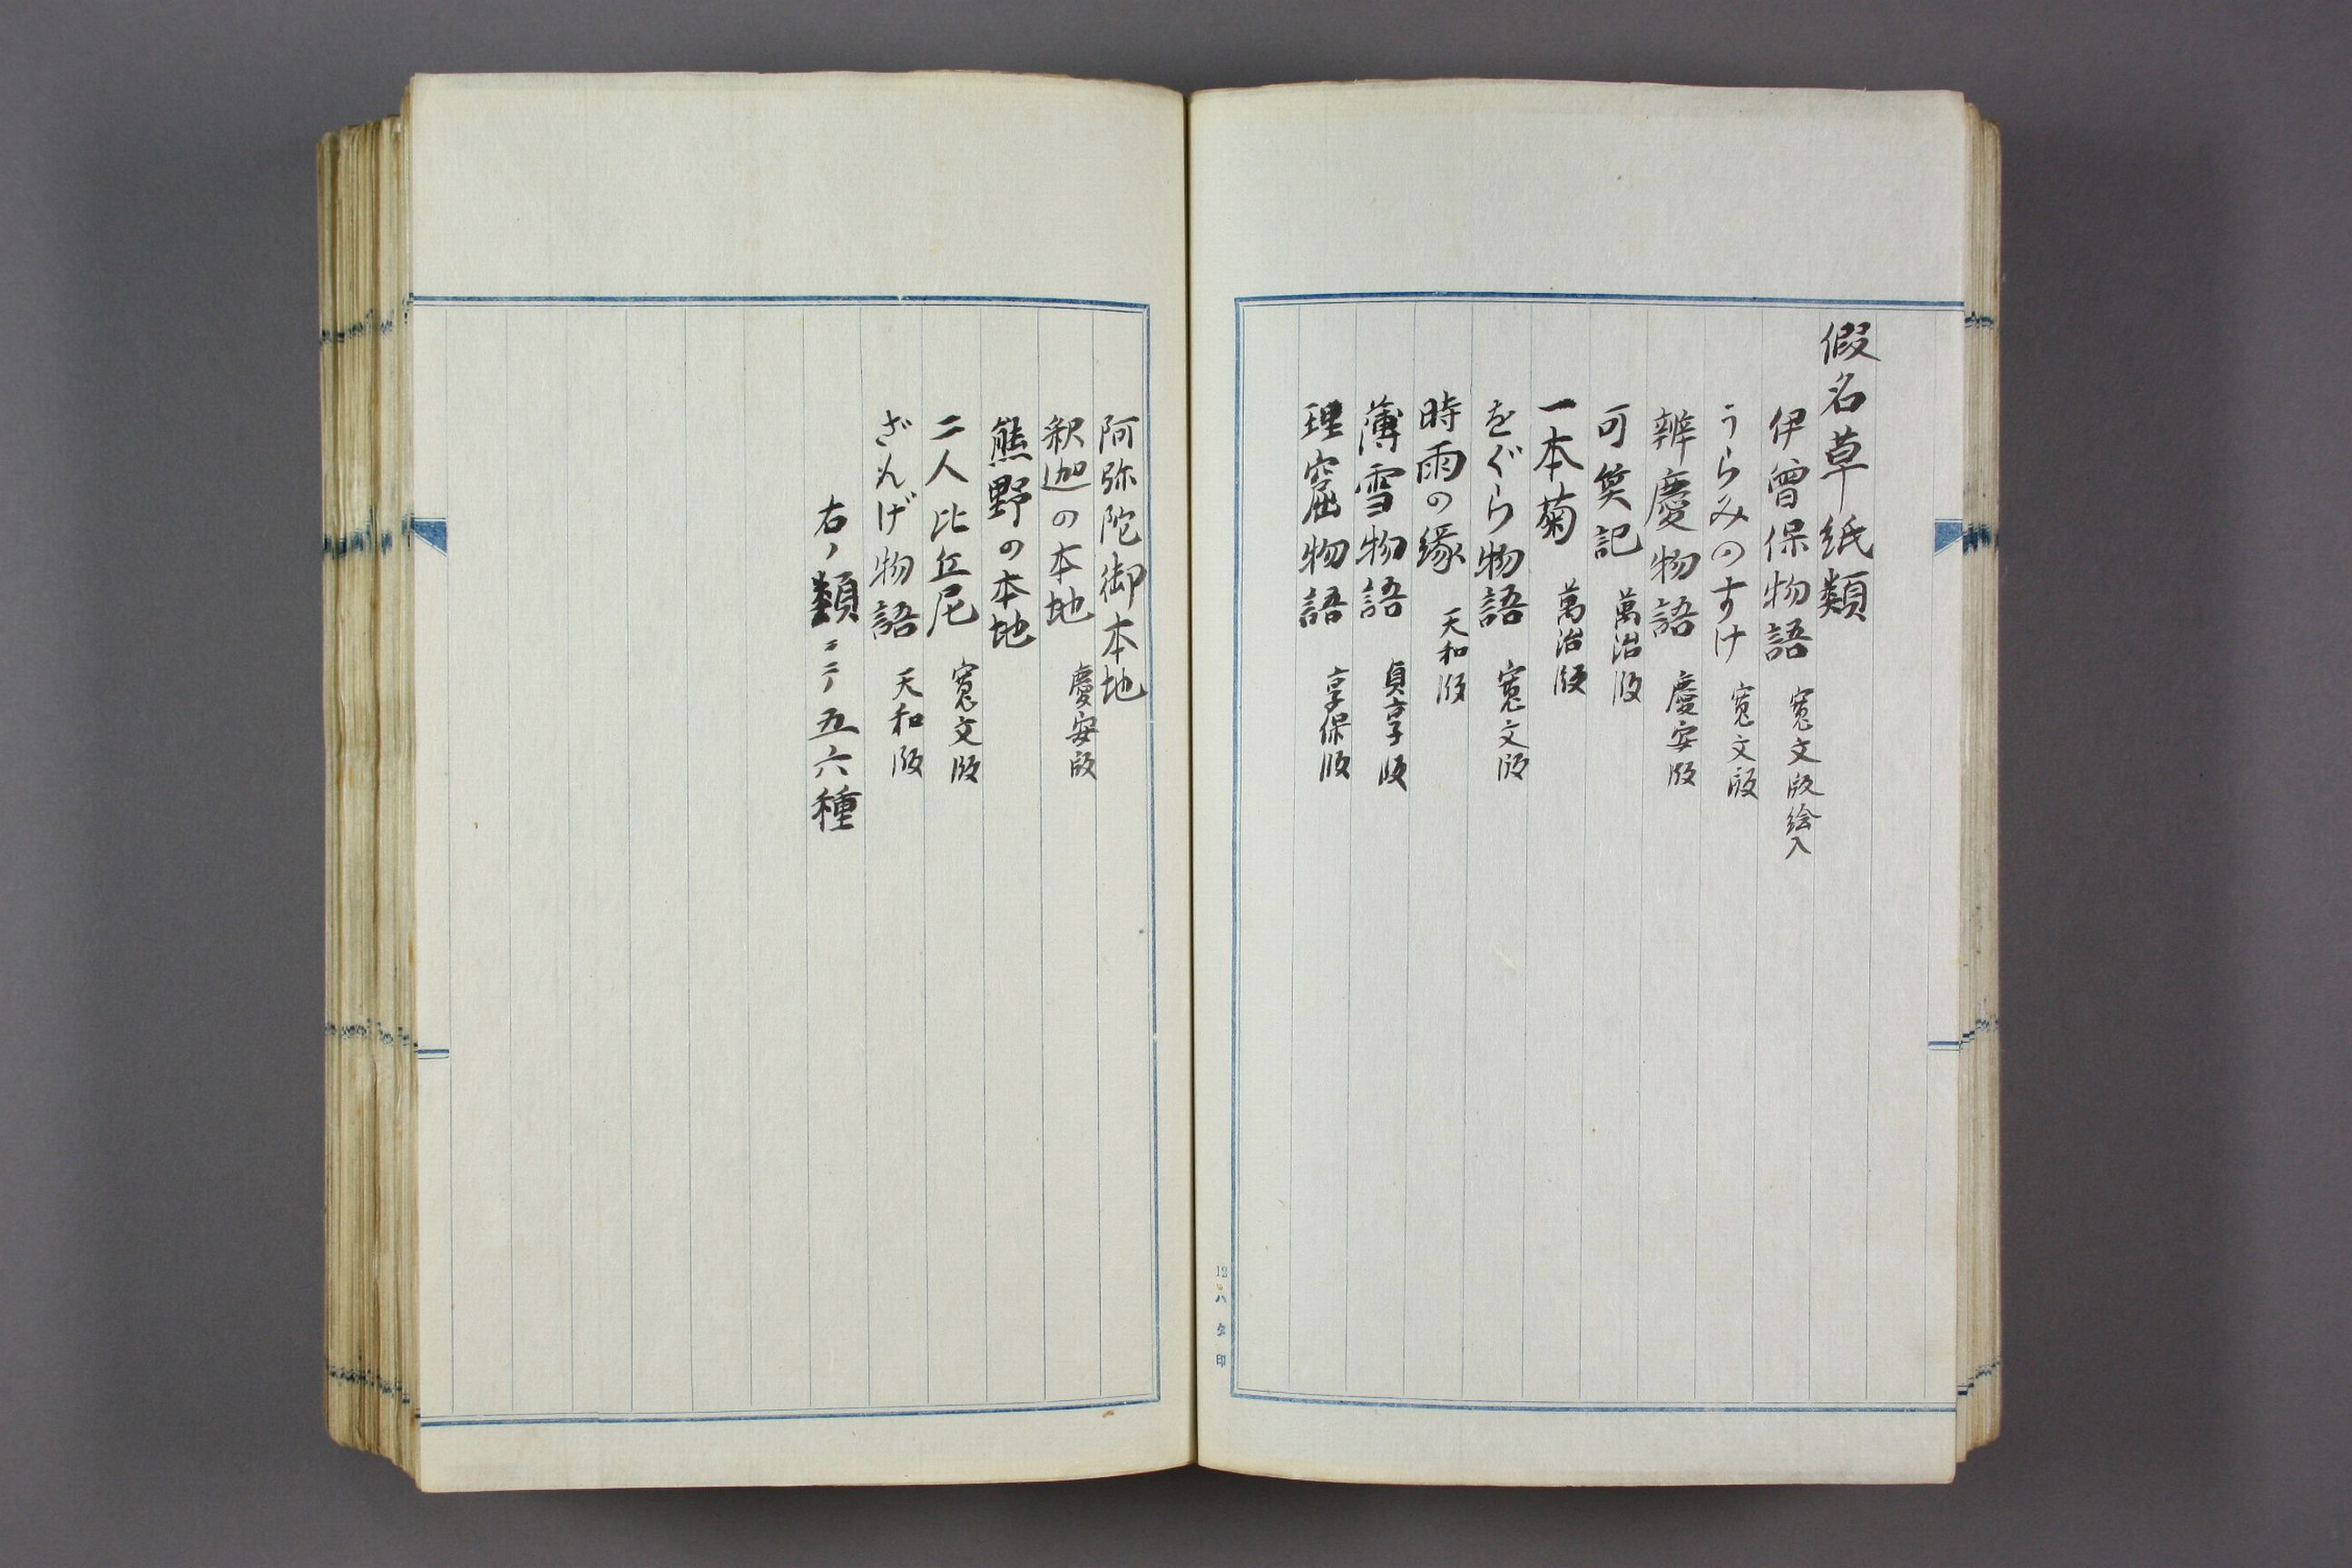 假名草紙類
伊曾保物語 寛文版絵入
うらみのすけ 寛文版
辨慶物語 慶安版
可笑記 萬治版
一本菊 萬治版
をぐら物語 寛文版
時雨の縁 天和版
薄雪物語 貞享版
理窟物語 享保版
12 ハタ印
阿弥陀御本地
釈迦の本地 慶安版
熊野の本地
二人比丘尼 寛文版
ざんげ物語 天和版
右ノ類ニテ五六種